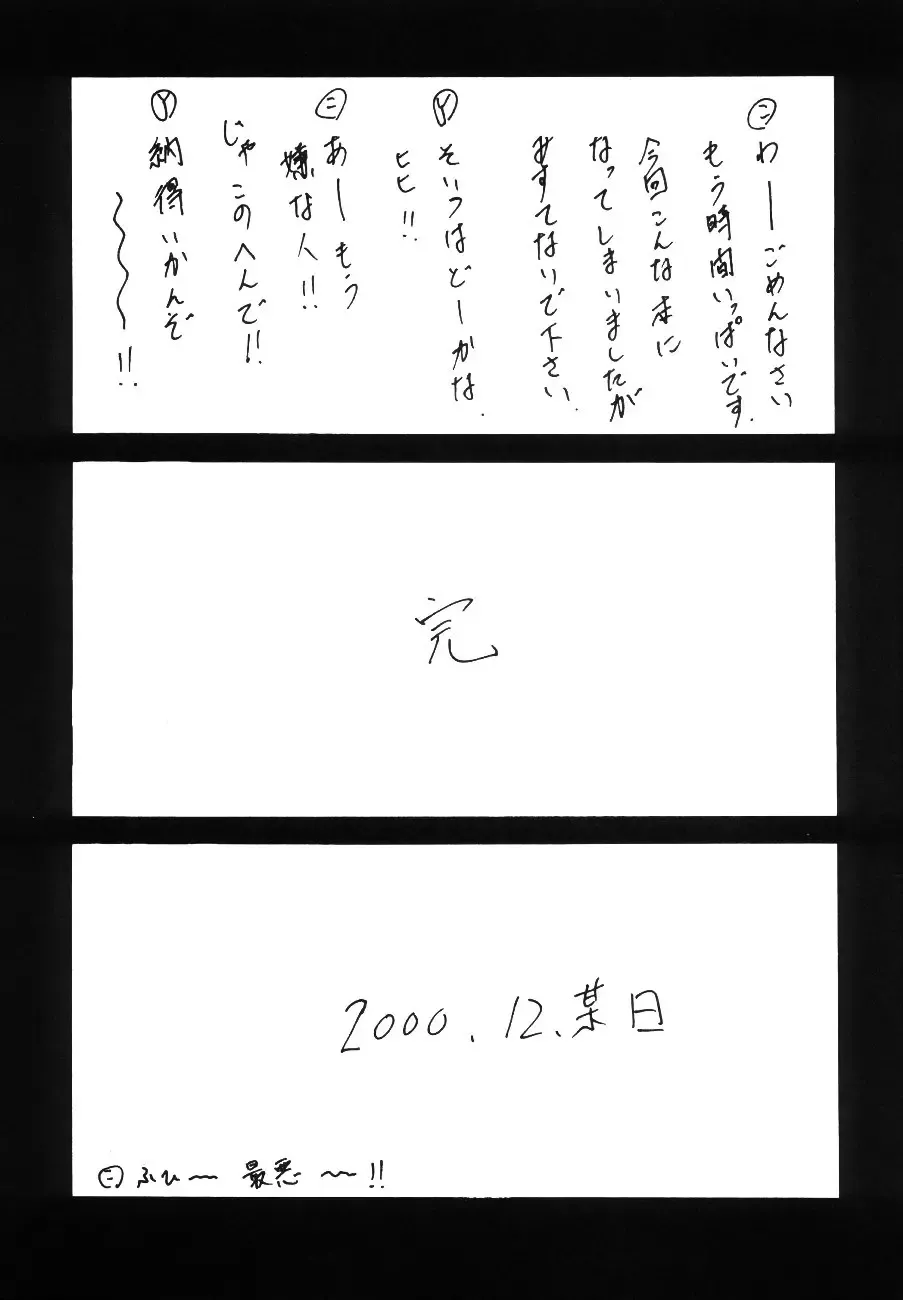 ㊁わーごめんなさい
もう時間いっぱいです.
今回こんな本に
なってしまいましたが
みすてないで下さい.
Ⓨそいつはどーかな.
ヒヒ!!
㊁あーもう
嫌な人!!
じゃこのへんで!!
Ⓨ納得いかんぞ
〜〜〜!!
完
2000.12.某日
㊁ふひ〜最悪〜!!